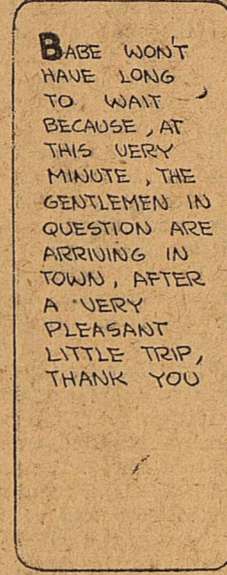 BABE WON'T
HAVE LONG
TO WAIT
BECAUSE, AT
THIS VERY
MINUTE, THE
GENTLEMEN IN
QUESTION ARE
ARRIVING IN
TOWN, AFTER
A VERY
PLEASANT
LITTLE TRIP,
THANK YOU